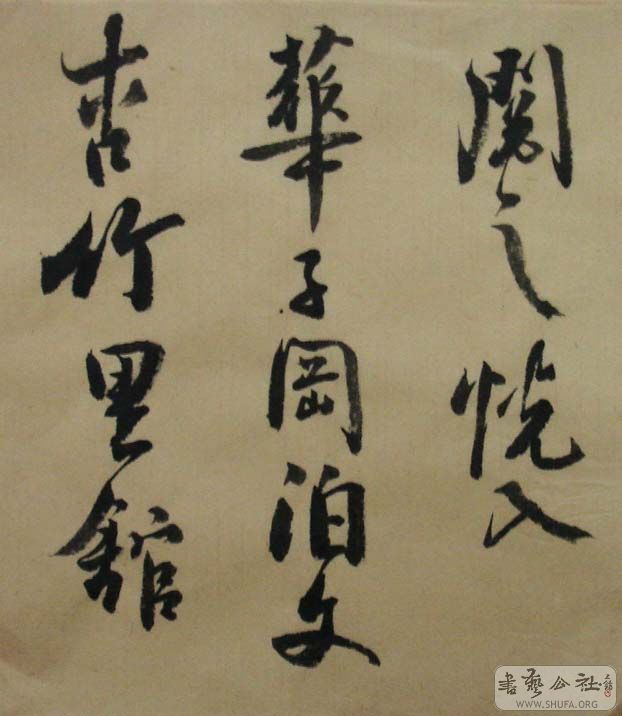 閱之恍入
華子岡泊文
杏竹里館
書藝公社
WWW.SHUFA.ORG